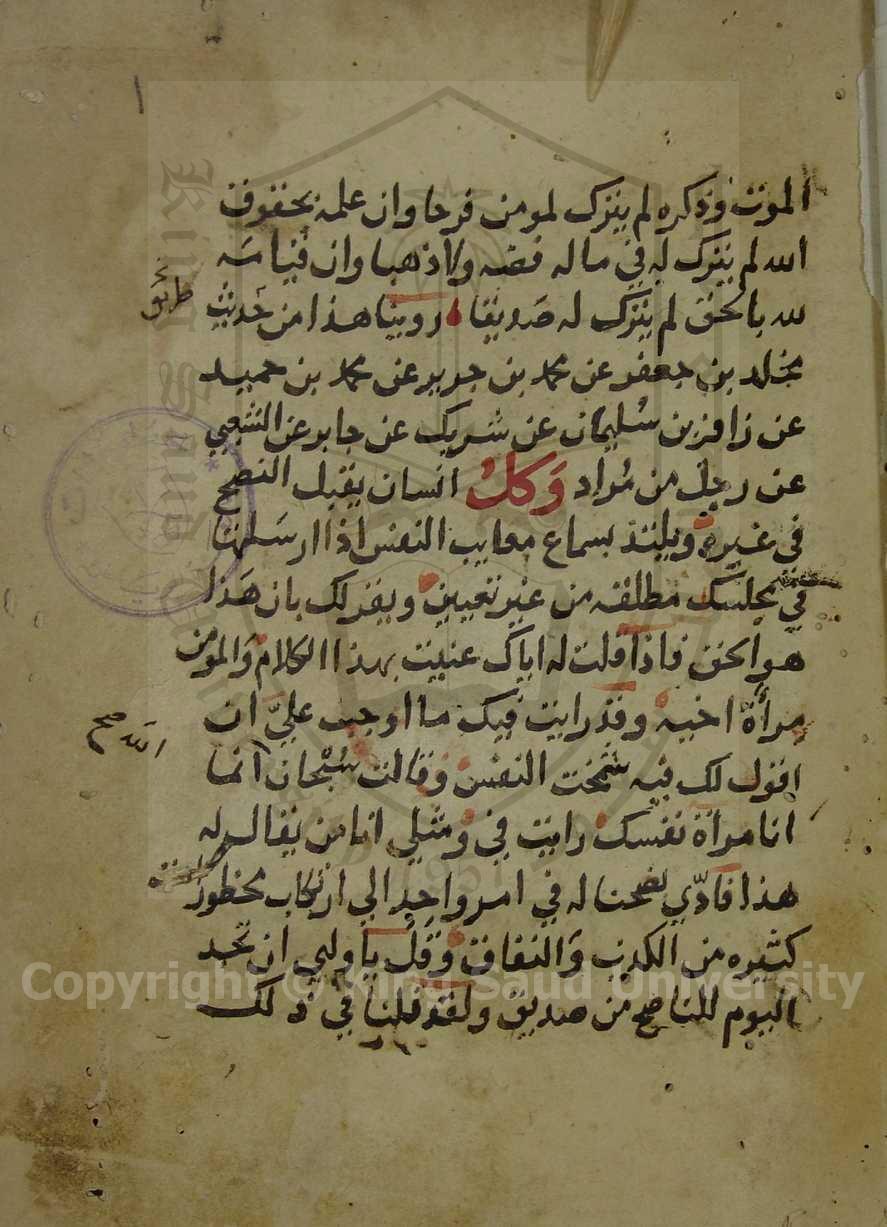 الموت وذكره لم يترك لمومن فرحا وان علمه بحقوق
الله لم يترك له في ماله فضه ولا ذهبا وان قيامه
لله بالحق لم يترك له صديقا روينا هذا من حديث
طريق
مخلد بن جعفر عن محمد بن جرير عن محمد بن حميد
عن زافر بن سُليمان عن شريك عن جابر عن الشعبي
عن رجل من مُراد وَكلُ انسان يقبل النصح
في غيره ويلتذ بسماع معايب النفس اذا ارسَلتها
في مجلسك مطلقه من غير تعيين ويقر لك بان هَذا
هو الحق فاذا قلت له اياك عنيت بهذا الكلام وَالمومن
مِرأة اخيه وقد رايت فيك ما اوجب عليَّ ان
الله صح
اقول لك فيه شمخت النفس وقالت سُبْحان انما
انا مرأة نفسك رايت في ومثلي انا من يقال له
هذا فادّي نصحنا له في امر واحدٍ الي ارتكاب محظورات
كثيره من الكذب وَالنفاق وَقل يا ولي ان تجد
اليوم للناصح من صديق ولقد قلنا في ذلك
Copyright © King Saud University
King Saud University
1957